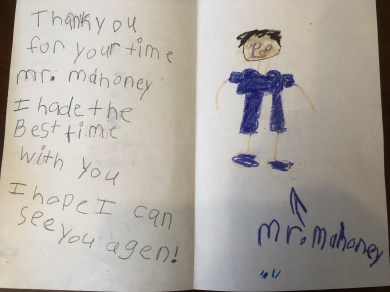 Thank you
for your time
mr. mahoney
I hade the
Best time
with you
I hope I can
see you agen!
mr. mahoney